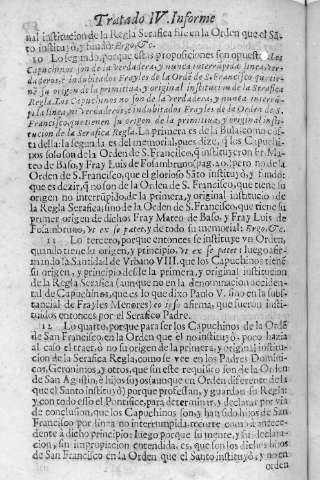 Tratado IV. Informe
nal institucion de la Regla Serafica fue en la Orden que el Sã-
to instituyò, y fundò: Ergo, &c.
10 Lo segundo, porque estas proposiciones son opuestas: Los
Capuchinos son de la verdadera, y nunca interrupida linea, ver-
daderos, è indubitados Frayles de la Ordẽ de S. Francisco, que tie-
nẽ su origen de la primitiva, y original institucion de la Serafica
Regla. Los Capuchinos no son de la verdadera, y nunca interru-
pida linea, ni verdaderos, è indubitados Frayles de la Orden de S.
Francisco, que tienen su origen de la primitiva, y original insti-
tucion de la Serafica Regla. La primera es de la Bula, como cõs-
ta della: la segunda es del memorial, pues dize, q̃ los Capuchi-
nos solo son de la Orden de S. Francisco, q̃ instituyeron Fr. Ma-
teo de Baso, y Fray Luis de Fosambruno, pero no de la
Orden de S. Francisco, que el glorioso Sãto instituyò, y fundò:
que es dezir, q̃ no son de la Orden de S. Francisco, que tiene su
origen no interrupido, de la primera, y original institucion de
la Regla Serafica; sino de la Orden de S. Francisco, que tiene su
primer origen de dichos Fray Mateo de Baso, y Fray Luis de
Fosambruno, ut ex se patet, y de todo su memorial: Ergo, &c.
11 Lo tercero, porque entonces se instituye vn Orden,
quando tiene su origen, y principio, ut ex se patet: luego afir-
mando la Santidad de Vrbano VIII. que los Capuchinos tienẽ
su origen, y principio desde la primera, y original institucion
de la Regla Serafica (aunque no en la denominacion acciden-
tal de Capuchinos, que es lo que dixo Paulo V. sino en la subs-
tancial de Frayles Menores) eo ipso afirma, que fueron insti-
tuidos entonces por el Serafico Padre.
12 Lo quarto, porque para ser los Capuchinos de la Ordẽ
de San Francisco en la Orden que el no instituyò, poco hazia
al caso el traer, ò no su origen de la primera, y original institu-
cion de la Serafica Regla, como se vee en los Padres Domini-
cos, Geronimos, y otros, que sin este requisito son de la Orden
de San Agustin, è hijos suyos (aunque en Orden diferente de la
que el Santo instituyò) porque professan, y guardan su Regla:
y con todo esso el Pontifice, para determinar, y declarar por via
de conclusion, que los Capuchinos son, y han sido hijos de San
Francisco por linea no interrumpida, recurre como à antece-
dente à dicho principio: luego porque su mente, y su declara-
cion, sin impropiacion entendida, es, que son los dichos hijos
de San Francisco en la Orden que el Santo instituyò, y no en
orden